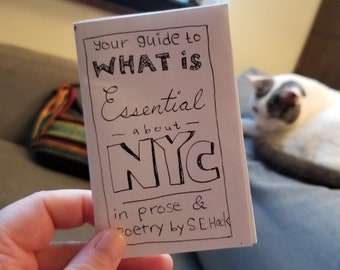 your guide to
WHAT is
Essential
about
NYC
in prose &
poetry by S.E. Hack